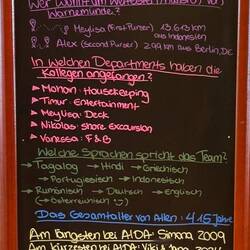 Wer wohnt am weitesten entfernt von
Warnemünde?
Meylisa (First Purser) 13.613 km
aus Indonesien
Alex (Second Purser) 299 km aus Berlin, De
In welchen Departments haben die
Kollegen angefangen?
Manon: Housekeeping
Timur: Entertainment
Meylisa: Deck
Nikolas: Shore Excursion
Vanessa: F&B
Welche Sprachen spricht das Team?
→ Tagalog → Hindi → Griechisch
→ Portugiesisch → Indonesisch
→ Rumänisch → Deutsch → Englisch
→ (österreichisch)
Das Gesamtalter von allen: 415 Jahre
Am längsten bei AIDA: Simona, 2009
Am kürzesten bei AIDA: Viki &